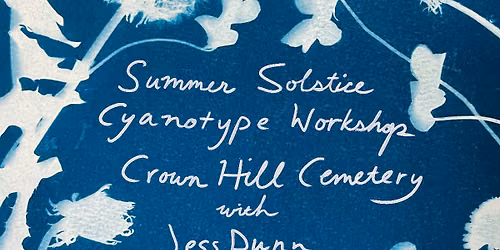 Summer Solstice
Cyanotype Workshop
Crown Hill Cemetery
with
Jess Dunn